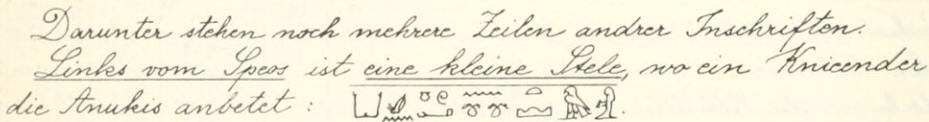 Darunter stehen noch mehrere Zeilen andrer Inschriften.
Links vom Speos ist eine kleine Stele, wo ein Knieender
die Anukis anbetet :